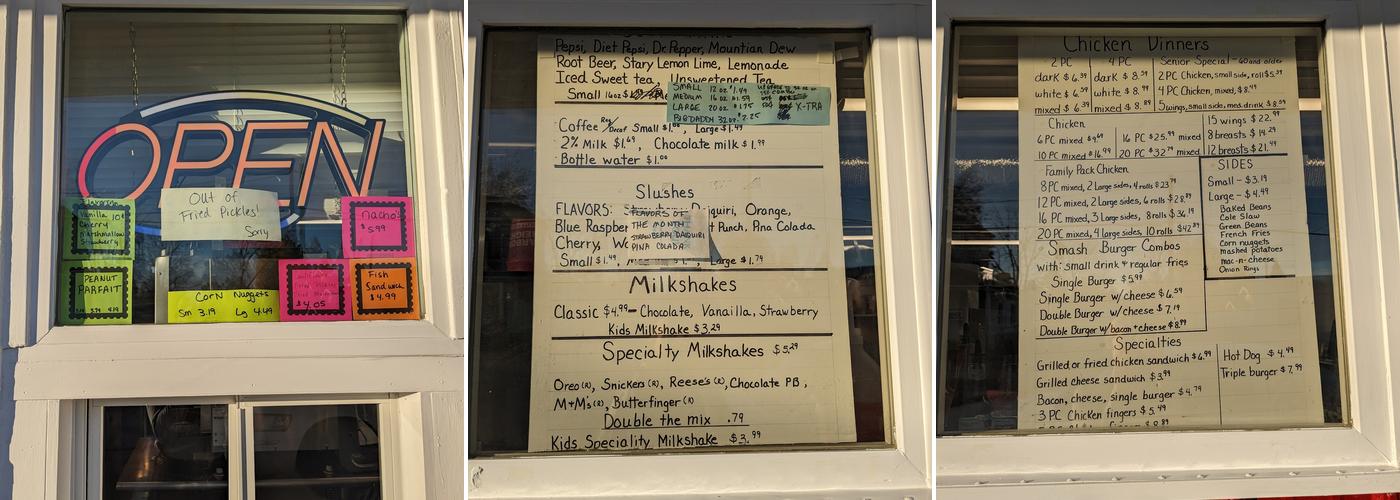 OPEN
Out of
Fried Pickles!
Sorry
Vanilla 10¢
Cherry
Marshmallow
Strawberry
nachos
$5.99
PEANUT
PARFAIT
Corn Nuggets
Sm 3.19 Lg 4.49
$4.05
Fish
Sandwich
$4.99
Pepsi, Diet Pepsi, Dr. Pepper, Mountian Dew
Root Beer, Stary Lemon Lime, Lemonade
Iced Sweet tea, Unsweetened Tea
Small 16oz
SMALL 12 oz $1.49
MEDIUM 16 oz $1.59
LARGE 20 oz $1.75
BIG DADDY 32oz $2.25
X-TRA
Coffee Reg/Decaf Small $1.00, Large $1.49
2% Milk $1.69, Chocolate milk $1.99
Bottle water $1.00
Slushes
FLAVORS: Daiquiri, Orange,
Blue Raspber t Punch, Pina Colada
Cherry,
FLAVORS OF
THE MONTH
STRAWBERRY DAIQUIRI
PINA COLADA
Small $1.49, Large $1.79
Milkshakes
Classic $4.99 — Chocolate, Vanailla, Strawberry
Kids Milkshake $3.29
Specialty Milkshakes $5.29
Oreo (R), Snickers (R), Reese's (R), Chocolate PB,
M+M's (R), Butterfinger (R)
Double the mix .79
Kids Speciality Milkshake $3.99
Chicken Dinners
2 PC
dark $6.39
white $6.59
mixed $6.39
4 PC
dark $8.59
white $8.99
mixed $8.89
Senior Special - 60 and older
2 PC Chicken, small side, roll $5.39
4 PC Chicken, mixed, $8.49
5 wings, small side, med. drink $8.59
Chicken
6 PC mixed $9.69
10 PC mixed $16.99
16 PC $25.99 mixed
20 PC $32.79 mixed
15 wings $22.99
8 breasts $14.29
12 breasts $21.49
Family Pack Chicken
8 PC mixed, 2 Large sides, 4 rolls $23.79
12 PC mixed, 2 Large sides, 6 rolls $28.89
16 PC mixed, 3 Large sides, 8 rolls $36.19
20 PC mixed, 4 large sides, 10 rolls $42.89
SIDES
Small - $3.19
Large - $4.49
Baked Beans
Cole Slaw
Green Beans
French Fries
Corn nuggets
mashed potatoes
mac-n-cheese
Onion Rings
Smash Burger Combos
with: small drink + regular fries
Single Burger $5.99
Single Burger w/cheese $6.59
Double Burger w/cheese $7.19
Double Burger w/bacon+cheese $8.99
Specialties
Grilled or fried chicken sandwich $6.99
Grilled cheese sandwich $3.99
Bacon, cheese, single burger $4.79
3 PC Chicken fingers $5.49
Hot Dog $4.49
Triple burger $7.99